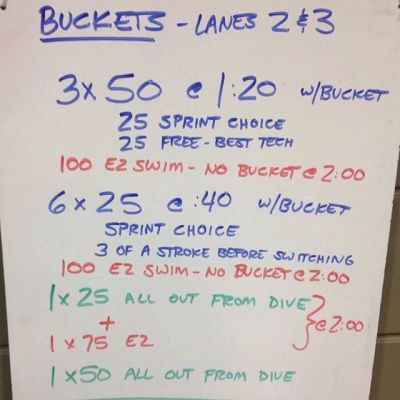 BUCKETS - LANES 2 & 3
3x50 @ 1:20 W/BUCKET
25 SPRINT CHOICE
25 FREE - BEST TECH
100 EZ SWIM - NO BUCKET @ 2:00
6x25 @ :40 W/BUCKET
SPRINT CHOICE
3 OF A STROKE BEFORE SWITCHING
100 EZ SWIM - NO BUCKET @ 2:00
1x25 ALL OUT FROM DIVE
+ @ 2:00
1x75 EZ
1x50 ALL OUT FROM DIVE